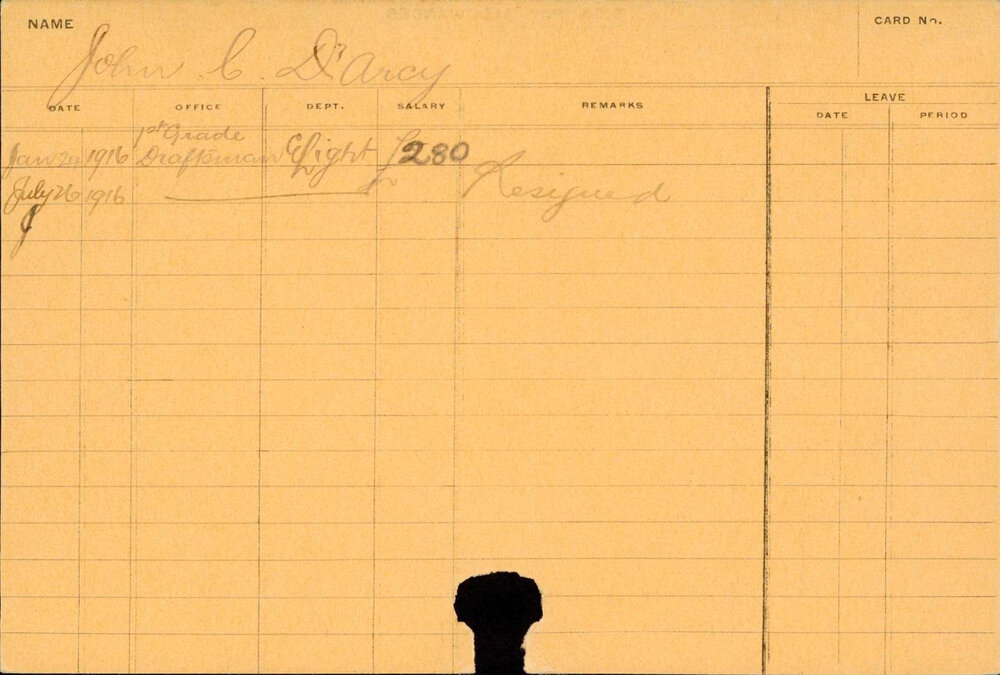 NAME
CARD No.
John C. D'Arcy
DATE OFFICE DEPT. SALARY REMARKS LEAVE
DATE PERIOD
1st Grade
Jan 24 1916 Draftsman E Light £280
July 26 1916 Resigned